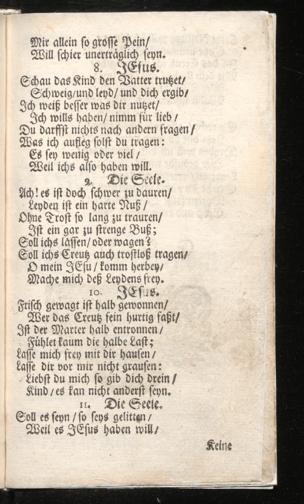 Mir allein so grosse Pein/
Will schier unerträglich seyn.
8. JEsus.
Schau das Kind den Vatter trutzet/
Schweig/und leyd/und dich ergib/
Ich weiß besser was dir nutzet/
Ich wills haben/nimm für lieb/
Du darffst nichts nach andern fragen/
Was ich aufleg solst du tragen:
Es sey wenig oder viel/
Weil ichs also haben will.
9. Die Seele.
Ach! es ist doch schwer zu dauren/
Leyden ist ein harte Nuß/
Ohne Trost so lang zu trauren/
Ist ein gar zu strenge Buß;
Soll ichs lassen/oder wagen?
Soll ichs Creutz auch trostloß tragen/
O mein JEsu/komm herbey/
Mache mich deß Leydens frey.
10. JEsus.
Frisch gewagt ist halb gewonnen/
Wer das Creutz fein hurtig faßt/
Ist der Marter halb entronnen/
Fühlet kaum die halbe Last;
Lasse mich frey mit dir hausen/
Lasse dir vor mir nicht grausen:
Liebst du mich so gib dich drein/
Kind/es kan nicht anderst seyn.
11. Die Seele.
Soll es seyn/so seys gelitten/
Weil es JEsus haben will/
Keine